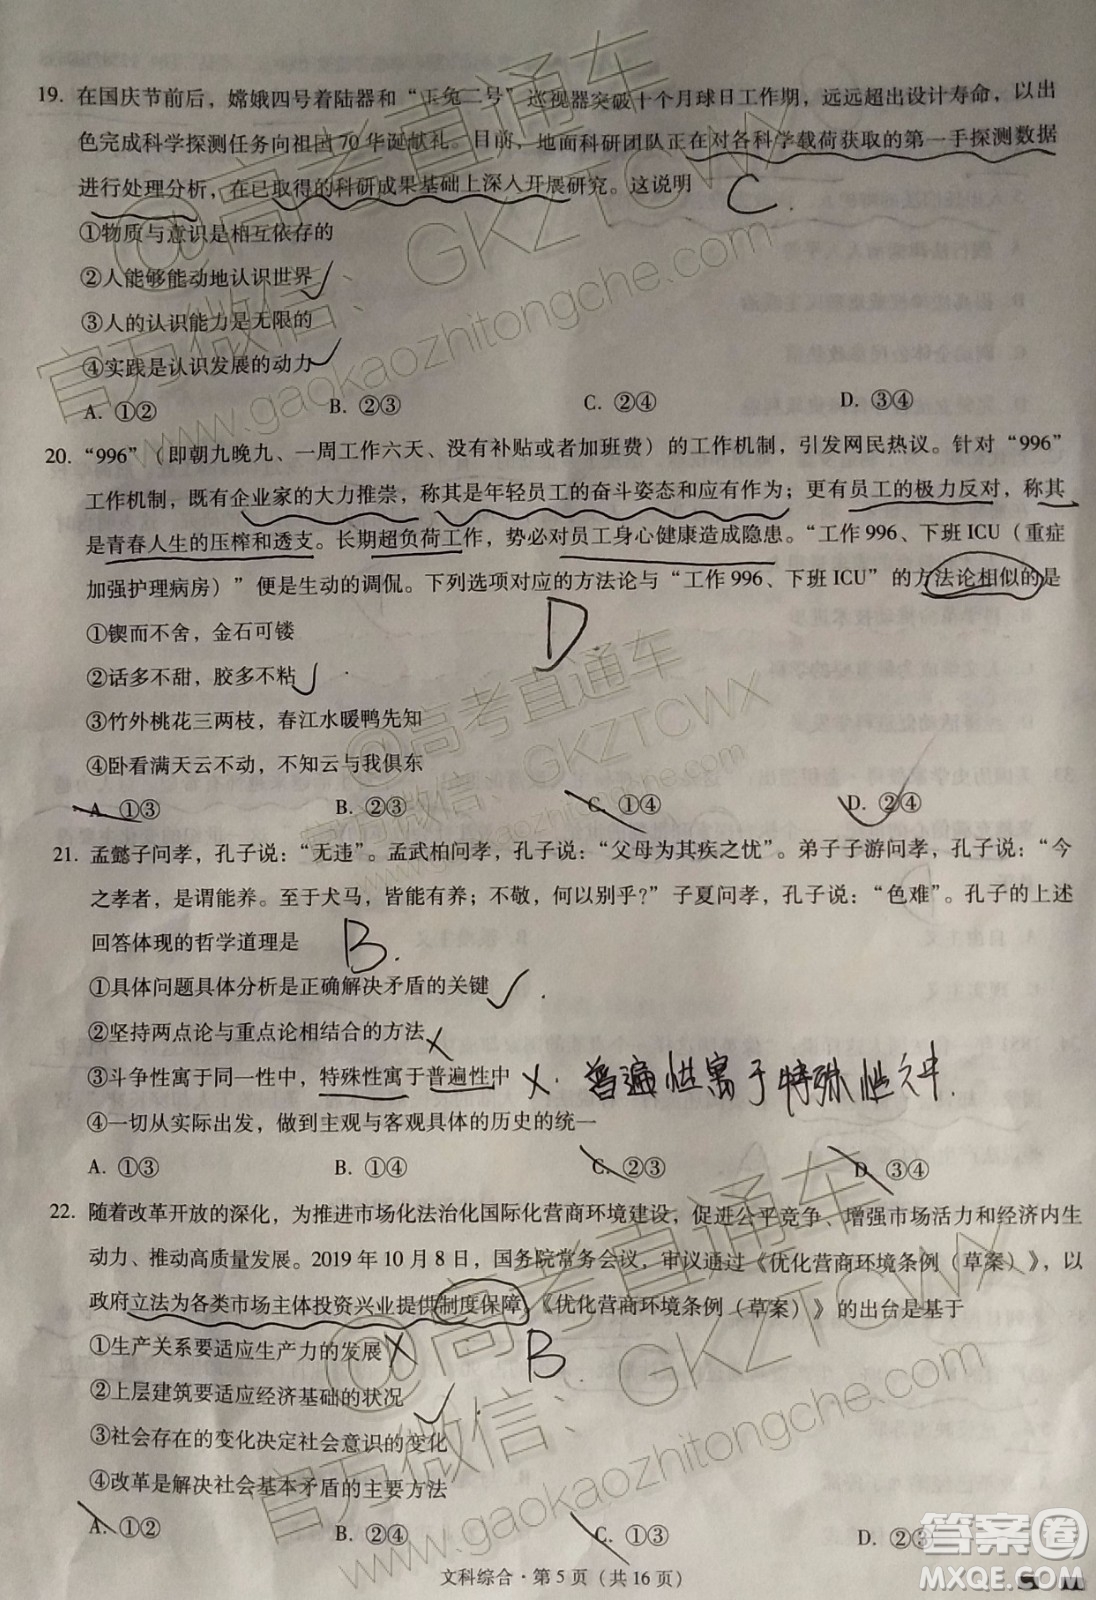 19. 在国庆节前后，嫦娥四号着陆器和“玉兔二号”巡视器突破十个月球日工作期，远远超出设计寿命，以出
色完成科学探测任务向祖国70华诞献礼。目前，地面科研团队正在对各科学载荷获取的第一手探测数据
进行处理分析，在已取得的科研成果基础上深入开展研究。这说明 C.
①物质与意识是相互依存的
②人能够能动地认识世界
③人的认识能力是无限的
④实践是认识发展的动力
A. ①② B. ②③ C. ②④ D. ③④
20. “996”（即朝九晚九、一周工作六天、没有补贴或者加班费）的工作机制，引发网民热议。针对“996”
工作机制，既有企业家的大力推崇，称其是年轻员工的奋斗姿态和应有作为；更有员工的极力反对，称其
是青春人生的压榨和透支。长期超负荷工作，势必对员工身心健康造成隐患。“工作996、下班ICU（重症
加强护理病房）”便是生动的调侃。下列选项对应的方法论与“工作996、下班ICU”的方法论相似的是
①锲而不舍，金石可镂 D
②话多不甜，胶多不粘
③竹外桃花三两枝，春江水暖鸭先知
④卧看满天云不动，不知云与我俱东
A. ①③ B. ②③ C. ①④ D. ②④
21. 孟懿子问孝，孔子说：“无违”。孟武柏问孝，孔子说：“父母为其疾之忧”。弟子子游问孝，孔子说：“今
之孝者，是谓能养。至于犬马，皆能有养；不敬，何以别乎？”子夏问孝，孔子说：“色难”。孔子的上述
回答体现的哲学道理是 B.
①具体问题具体分析是正确解决矛盾的关键
②坚持两点论与重点论相结合的方法
③斗争性寓于同一性中，特殊性寓于普遍性中 X. 普遍性寓于特殊性之中.
④一切从实际出发，做到主观与客观具体的历史的统一
A. ①③ B. ①④ C. ②③ D. ③④
22. 随着改革开放的深化，为推进市场化法治化国际化营商环境建设，促进公平竞争、增强市场活力和经济内生
动力、推动高质量发展。2019年10月8日，国务院常务会议，审议通过《优化营商环境条例（草案）》，以
政府立法为各类市场主体投资兴业提供制度保障。《优化营商环境条例（草案）》的出台是基于
①生产关系要适应生产力的发展 B.
②上层建筑要适应经济基础的状况
③社会存在的变化决定社会意识的变化
④改革是解决社会基本矛盾的主要方法
A. ①② B. ②④ C. ①③ D. ②③
文科综合·第5页（共16页）
@高考直通车
官方微信、GKZTCWX
www.gaokaozhitongche.com
@高考直通车
官方微信、GKZTCWX
www.gaokaozhitongche.com
@高考直通车
官方微信、GKZTCWX
www.gaokaozhitongche.com
答案圈
MXQE.COM